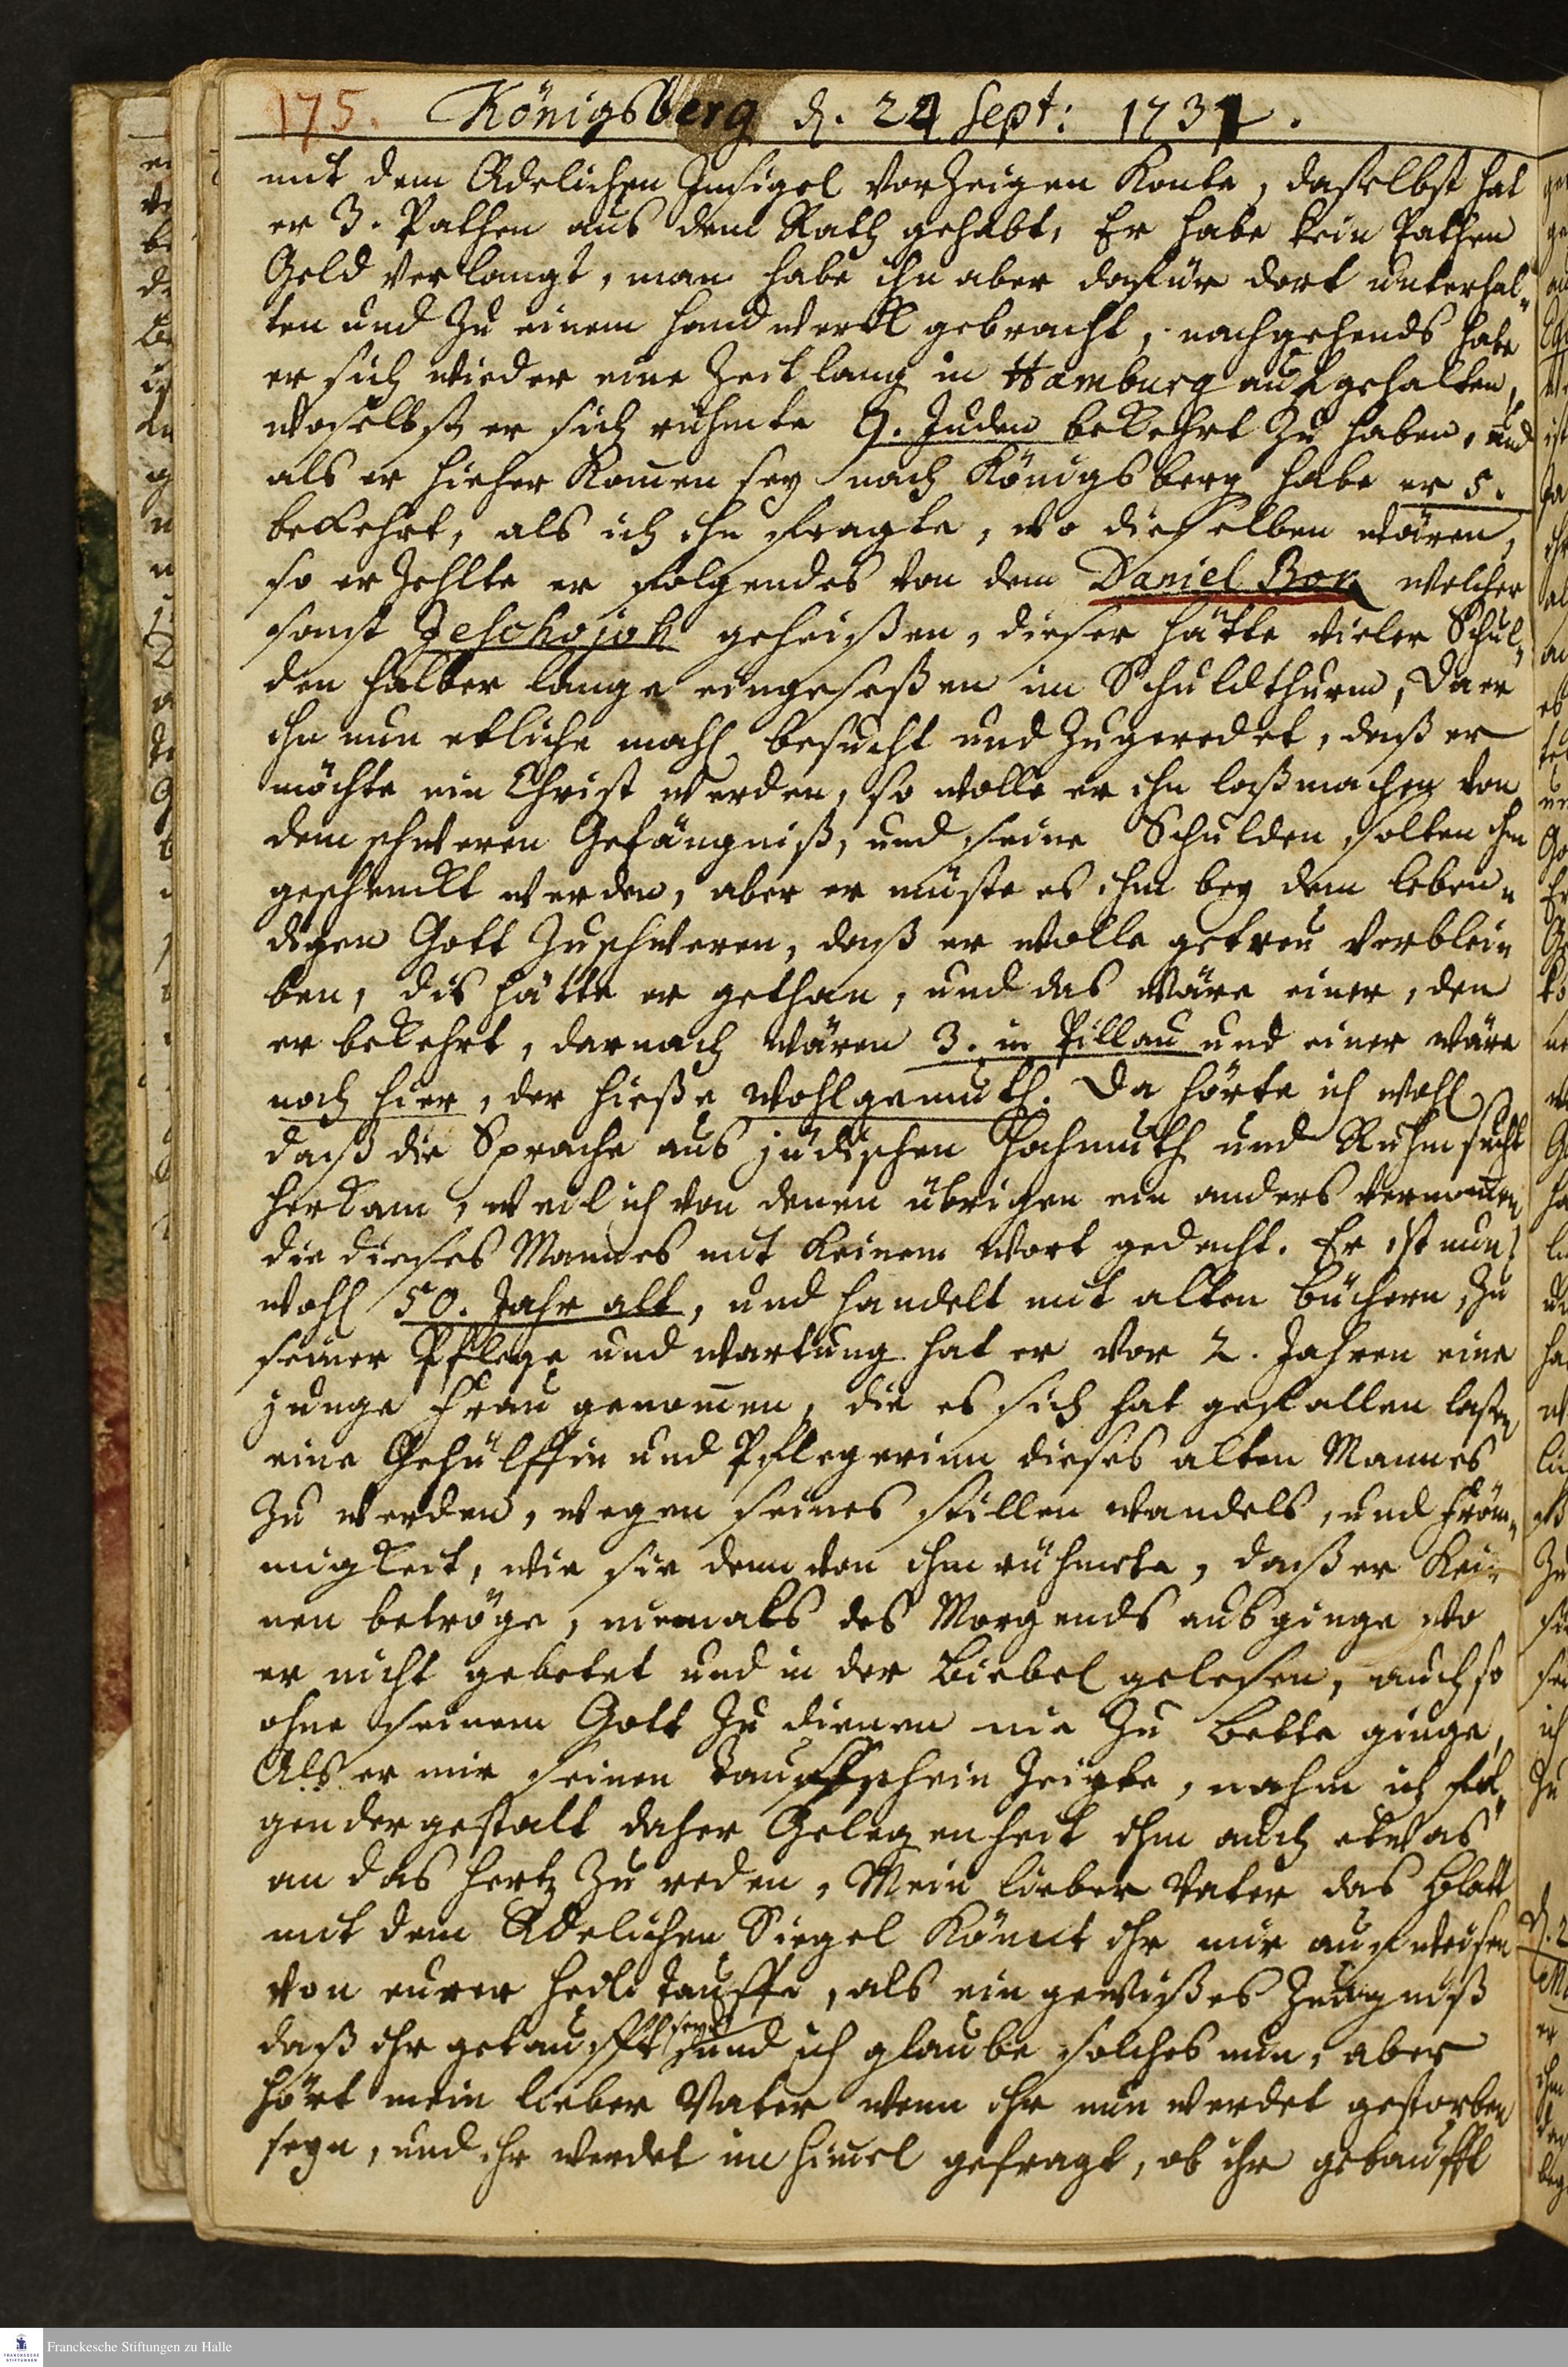 175. Königsberg d. 24 Sept: 1731.
mit dem Adelichen Insigel vorzeigen konte, daselbst hat
er 3. Pathen aus dem Rath gehabt, Er habe kein Pathen
Geld verlangt, man habe ihn aber dafür dort unterhal-
ten und zu einem handwerck gebracht, nachgehends habe
er sich wieder eine Zeitlang in Hamburg aufgehalten,
woselbst er sich rühmte 9. Juden bekehrt zu haben, und
als er hieher kom̄en sey nach Königsberg habe er 5.
bekehrt, als ich ihn fragte, wo dieselben wären,
so erzehlte er folgendes von dem Daniel Bon welcher
sonst Jeschojoh geheißen, dieser hätte vieler Schul-
den halber lange eingeseßen im Schuldthurm, Da er
ihn nun etliche mahl besucht und zugeredet, daß er
möchte ein Christ werden, so wolle er ihn loßmachen von
dem schweren Gefängniß, und seine Schulden solten ihm
geschenckt werden, aber er müste es ihm bey dem leben-
digen Gott zuschweren, daß er wolle getreu verblei-
ben, dis hätte er gethan, und das wäre einer, den
er bekehrt, darnach wären 3. in Pillau und einer wäre
noch hier, der hieße Wohlgemuth. Da hörte ich wohl
daß die Sprache aus jüdischen Hochmuth und Ruhmsucht
herkam, weil ich von denen übrigen ein anders vernom̄en
die dieses Mannes mit keinem Wort gedacht. Er ist nun
wohl 50. Jahr alt, und handelt mit alten büchern, zu
seiner Pflege und wartung hat er vor 2. Jahren eine
junge Frau genom̄en, die es sich hat gefallen laßen
eine Gehülffin und Pflegerinn dieses alten Mannes
zu werden, wegen seines stillen wandels, und Fröm-
migkeit, wie sie denn von ihm rühmete, daß er kei-
nen betröge, niemals des Morgends ausginge wo
er nicht gebetet und in der Biebel gelesen, auch so
ohne seinem Gott zu dienen nie zu bette ginge,
Als er mir seinen tauffschein zeigte, nahm ich fol-
gender gestalt daher Gelegenheit ihm auch etwas
an das hertz zu reden, Mein lieber Vater das blatt
mit dem Adelichen Siegel könnt ihr mir aufweisen
von eurer heil. tauffe, als ein gewißes Zeugniß
daß ihr getaufft seyd und ich glaube solches nun, aber
hört mein lieber Vater wenn ihr nun werdet gestorben
seyn, und ihr werdet im him̄el gefragt, ob ihr getaufft
Franckesche Stiftungen zu Halle